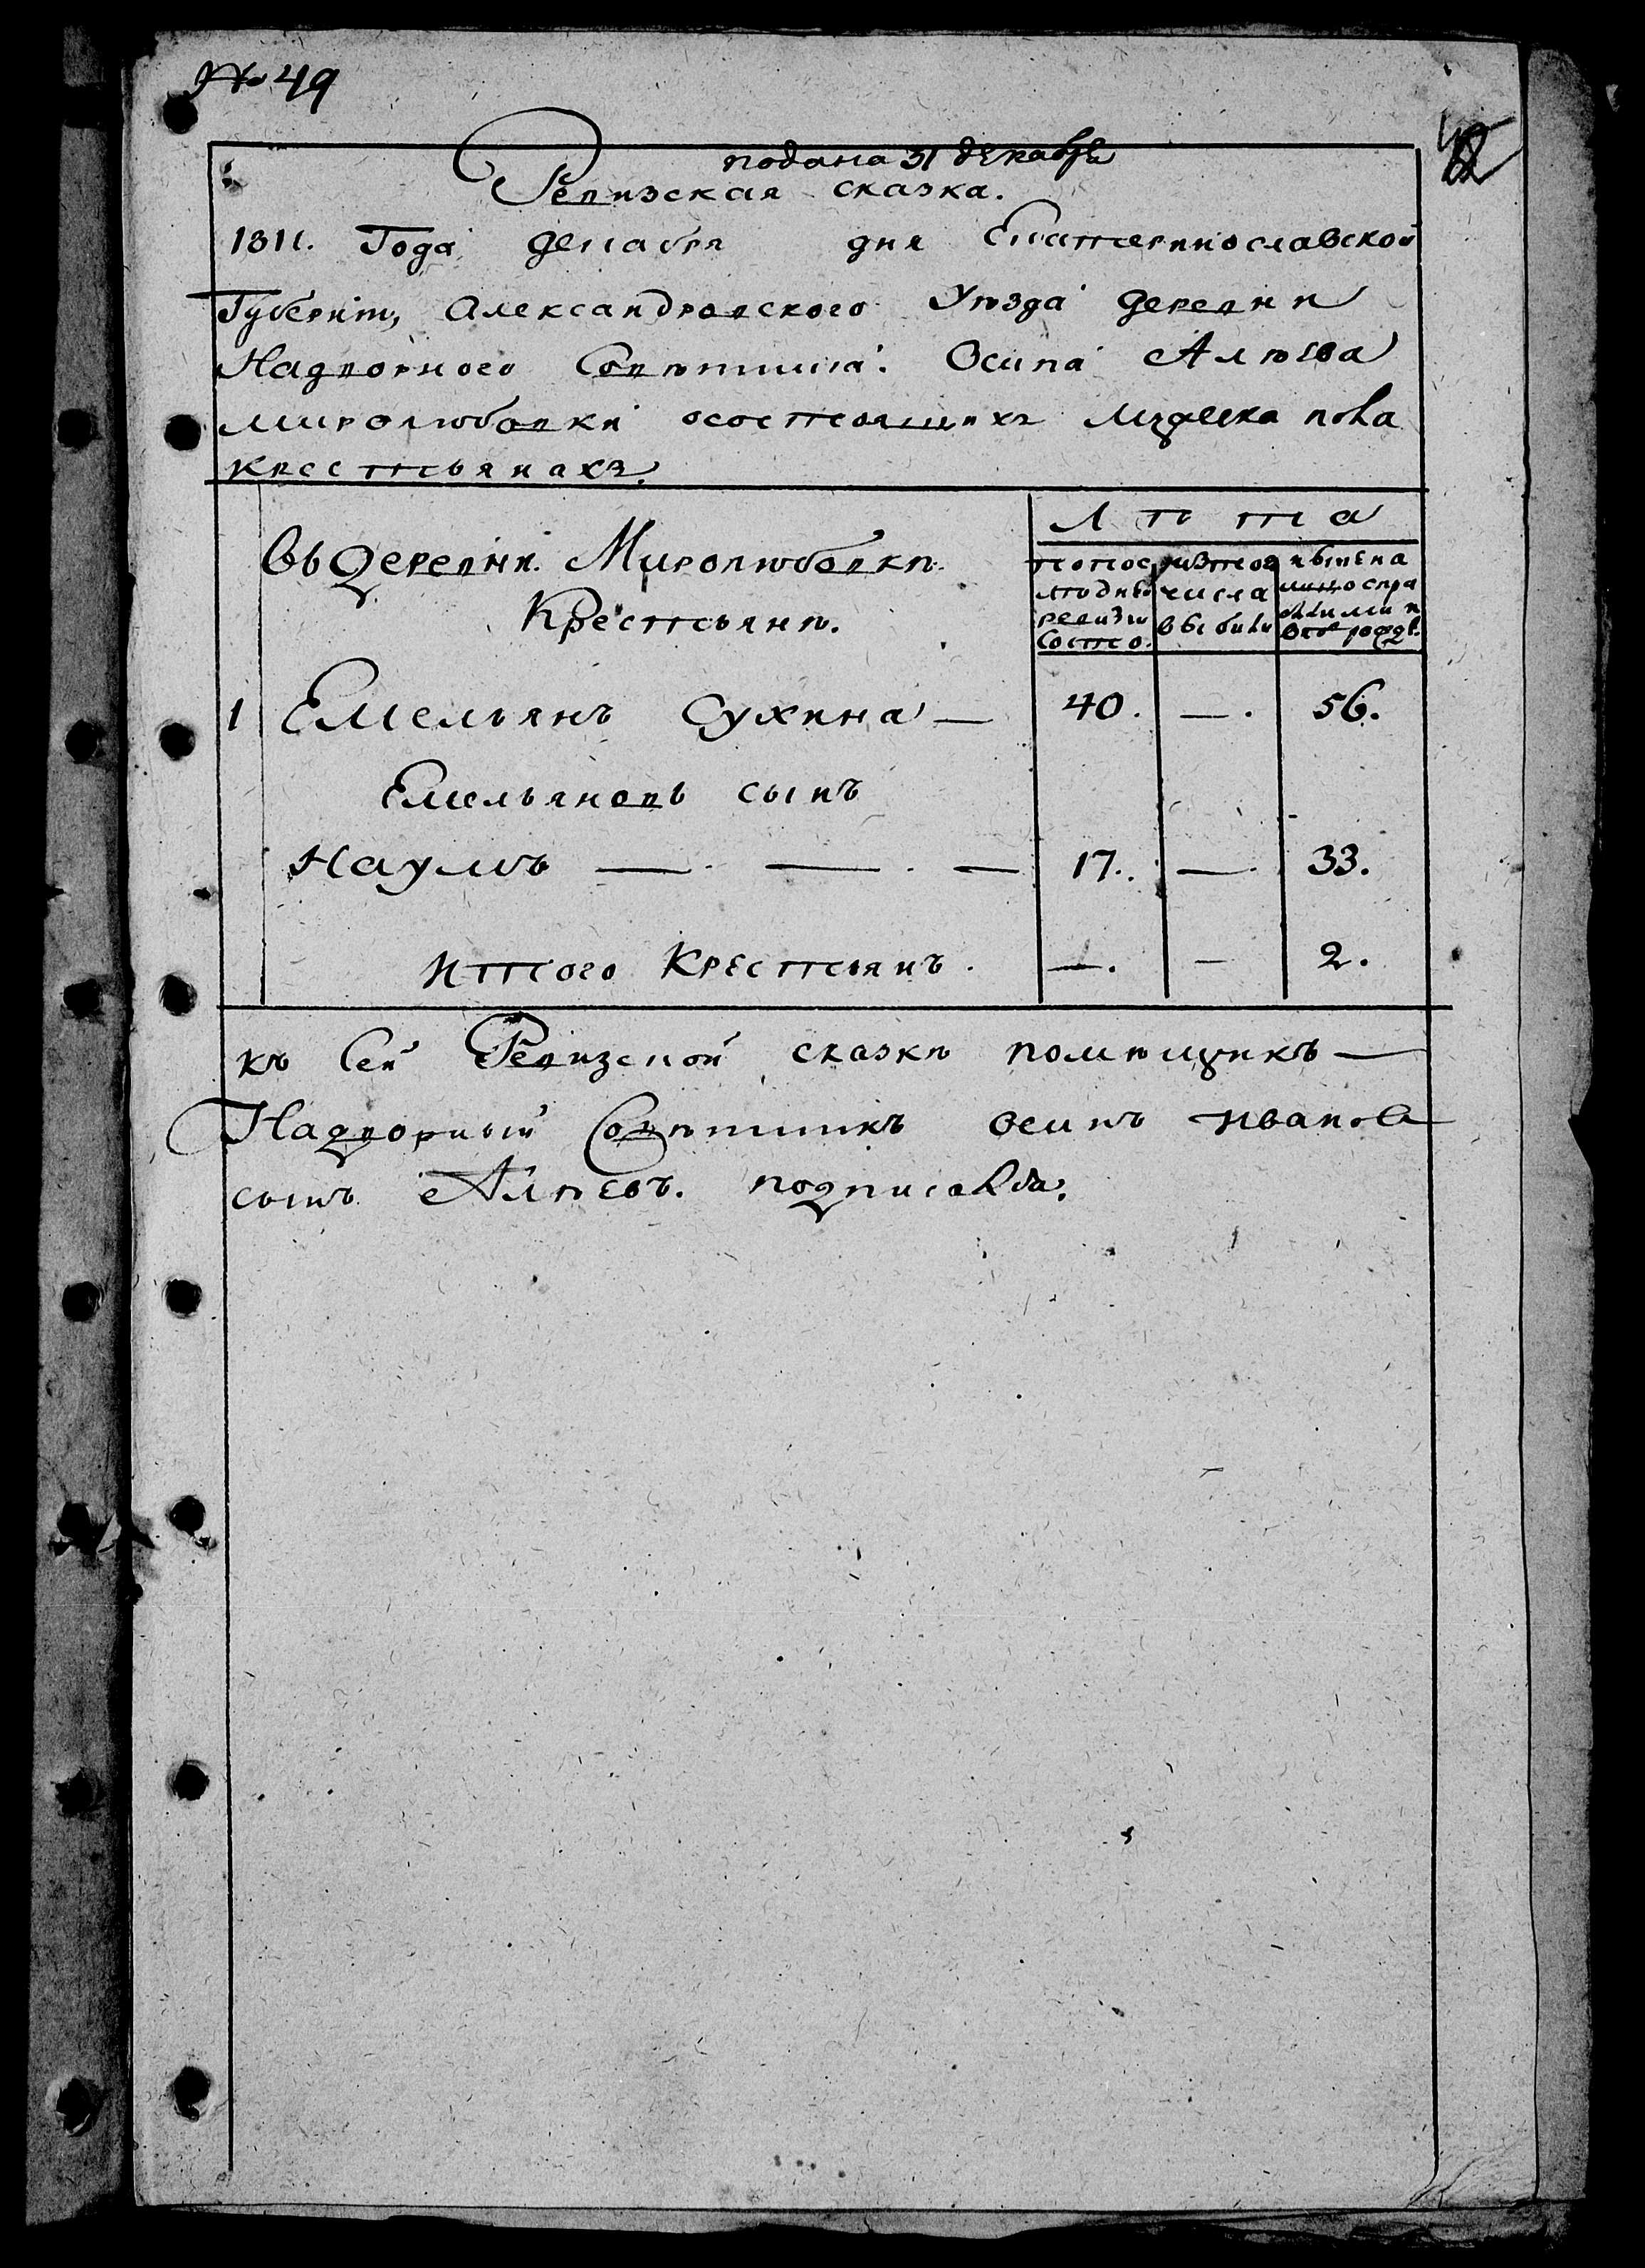 № 49
подана 31 декабря
Ревизская сказка.
1811. Года декабря дня Екатеринославской
Губернiи, Александровского Уѣзда деревни
Надворного Совѣтника Осипа Алѣева
Миролюбовки осостоящихъ мужеска пола
крестьянахъ.
Лѣта
въ деревни Миролюбовки.
Крестьянѣ.
попос
лѣдней
ревизiи
состо.
изтого
числа
выбыли
нынѣ на
лицо спра
былыми и
вновь рожд.
1 Емельянъ Сухина — 40. —. 56.
Емельяновъ сынъ
Наумъ —. —. — 17. —. 33.
Итого Крестьянъ. —. — 2.
къ Сей Ревизской сказкѣ помѣщикъ —
Надворный Совѣтникъ Осипъ Ивановъ
сынъ Алѣевъ. подписался.